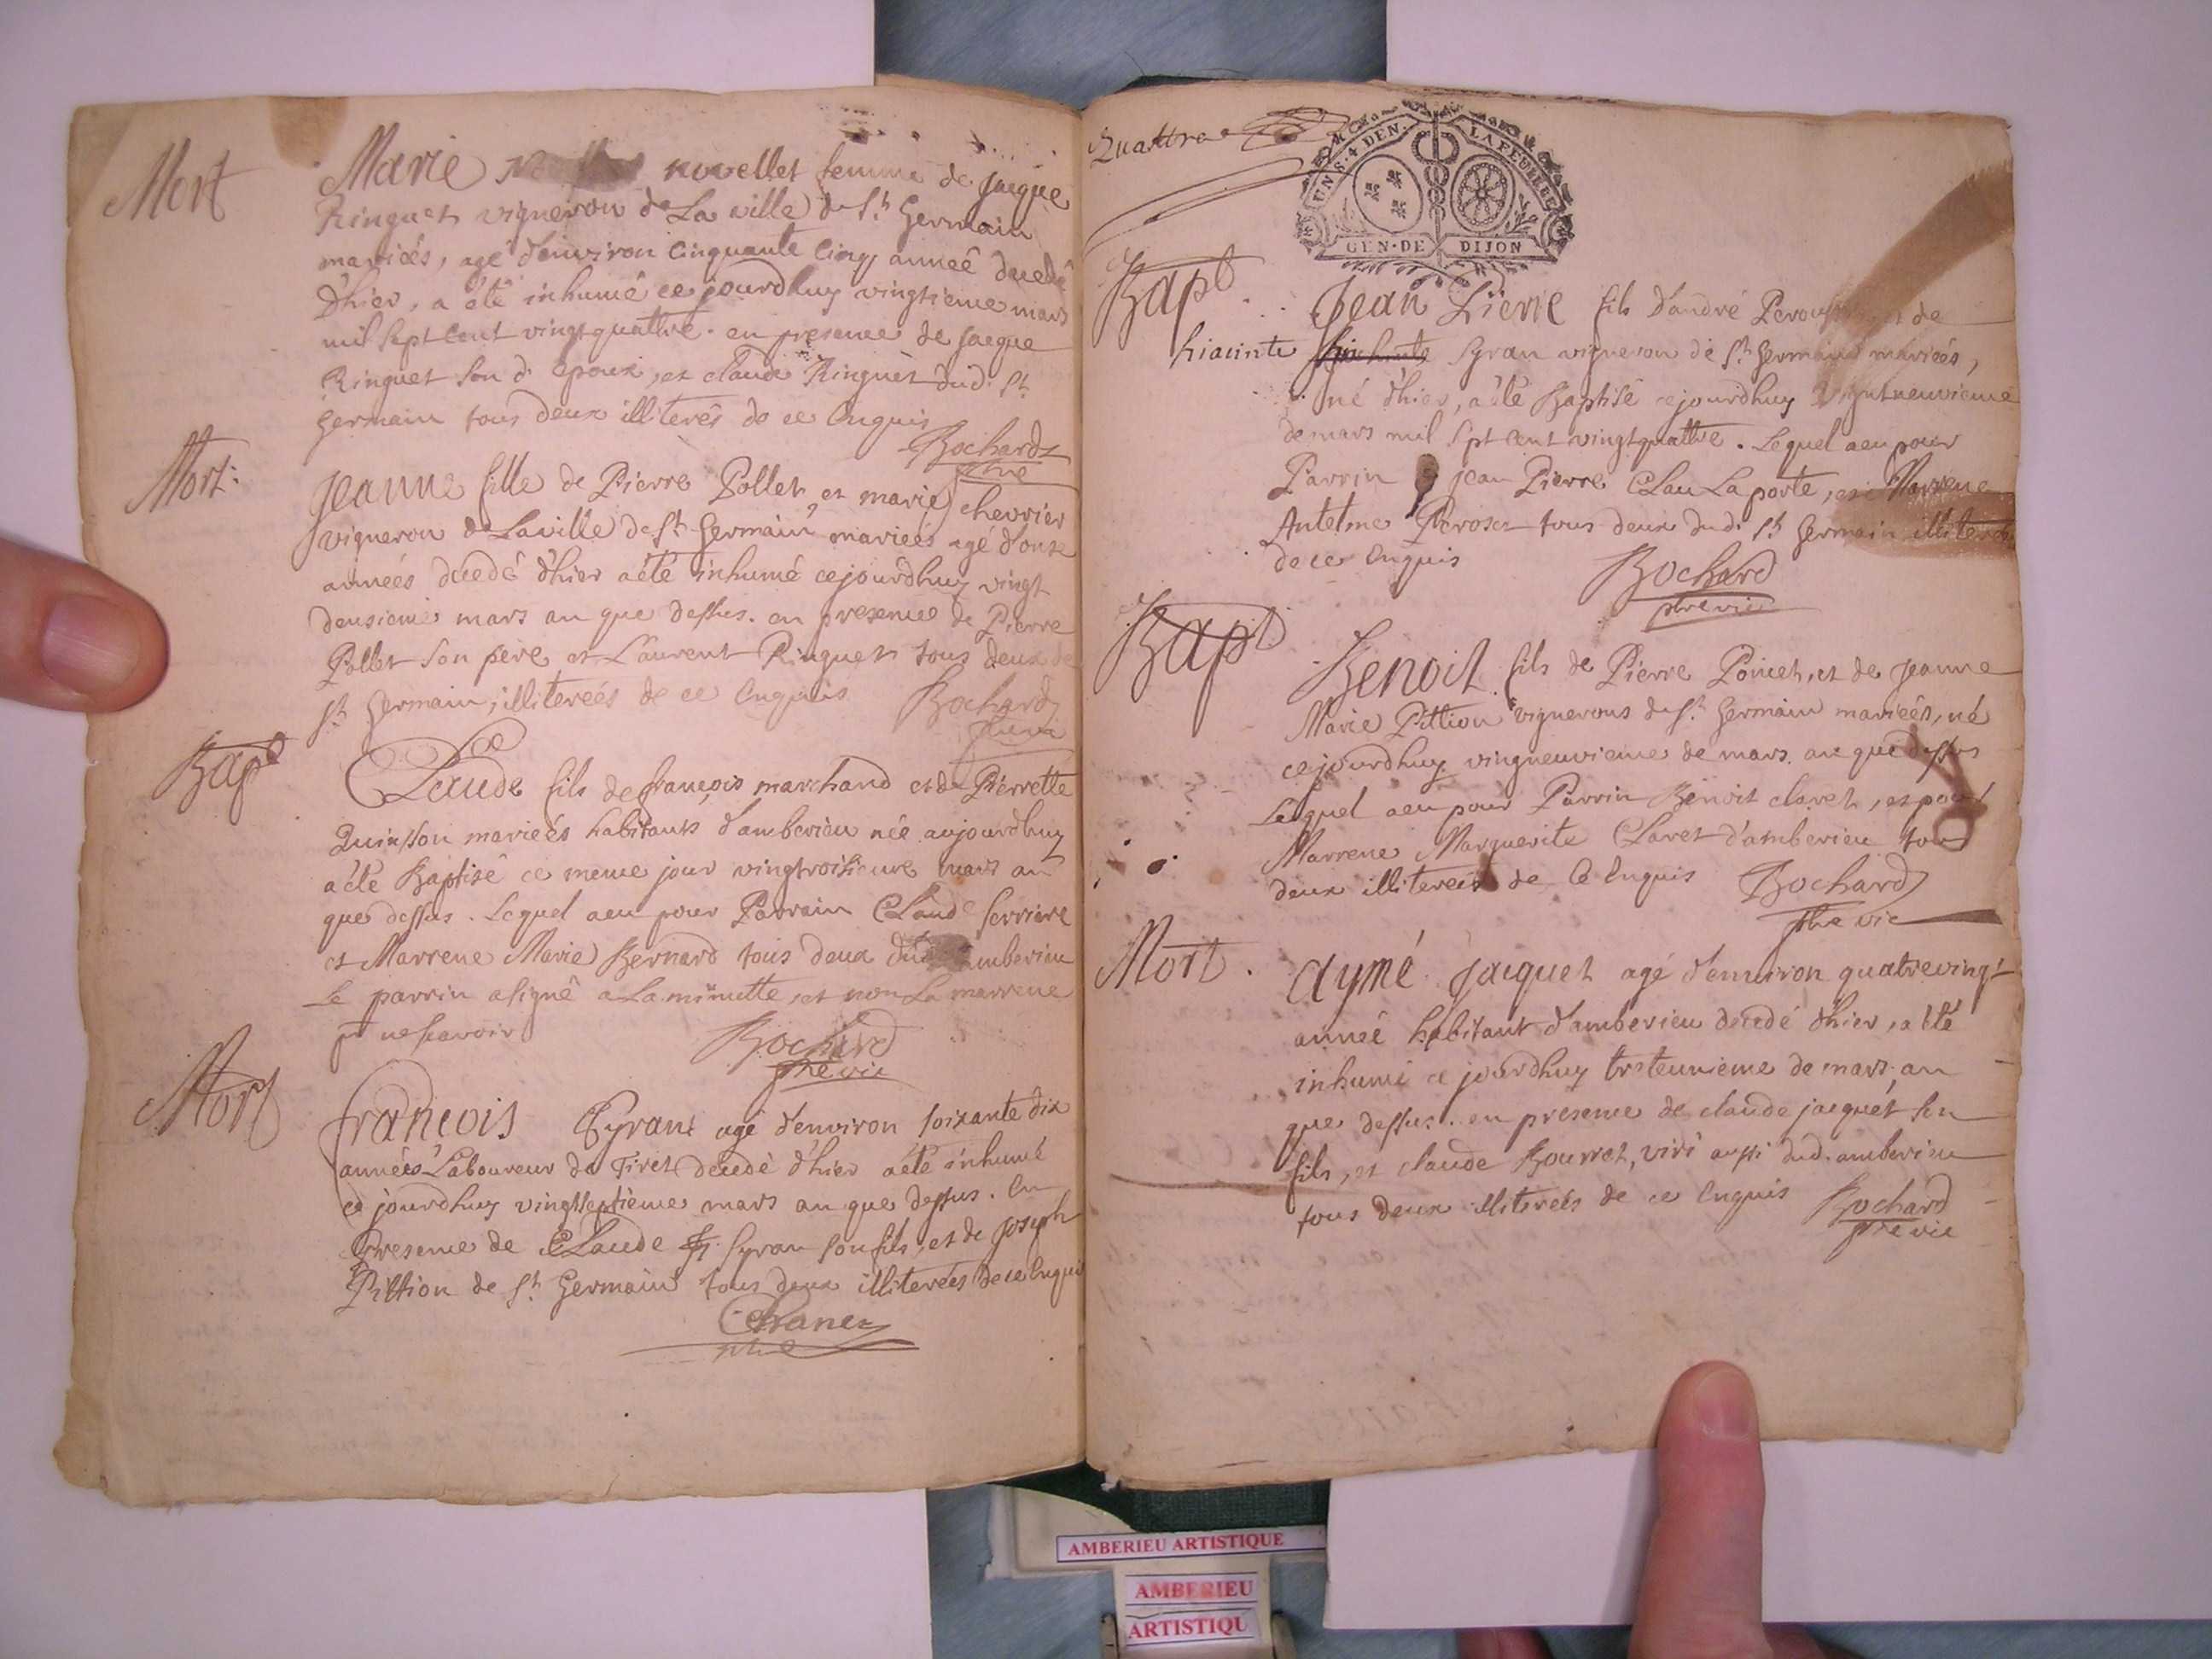 Mort
Marie novellet femme de jacque
Ringuet vigneron de La ville de St. Germain
mariées, agé d'environ Cinquante Cinq anneé decedé
d'hier, a été inhumé ce jourdhuy vingtieme mars
mil sept cent vingt quattre. en presence de jacque
Ringuet son d. epoux, et claude Ringuet dud. St.
Germain tous deux illiterés de ce Enquis
Bochard
ptre
Mort:
jeanne fille de Pierre Pollet et marie chevrier
vigneron de Laville de St. Germain mariées agé d'onze
années decedé d'hier a été inhumé cejourdhuy vingt
deusieme mars an que dessus. en presence de Pierre
Pollet son pere et Laurent Ringuet tous deux de
St. Germain, illitereés de ce Enquis Bochard
Bapt
Claude fils de françois marchand et de Pierrette
Quinsson marieés habitants d'amberieu née aujourdhuy
a été Baptisé ce meme jour vingtroisieme mars an
que dessus. Lequel a eu pour Parrain Claude ferriere
et Marrene Marie Bernard tous deux dud amberieu
Le parrin a signé a La minutte, et non La marrene
pr ne scavoir
Bochard
ptre vic
Mort
francois Syran agé d'environ soixante dix
années Laboureur de Tiret decedé d'hier a été inhumé
ce jourdhuy vingtseptième mars an que dessus. En
Presence de Claude Syran son fils, et de joseph
Pittion de St. Germain tous deux illitereés de ce Enquis
Chanez
ptre
Quattre
UN S. 4 DEN. LA FEUILLE
GEN. DE DIJON
Bapt
jean Pierre fils d'andré et de
hiacinte Syran vigneron de St. Germain marieés,
né d'hier, a été Baptisé cejourdhuy vigntneuvieme
de mars mil sept Cent vingtquattre. Lequel a eu pour
Parrin jean Pierre CLau La porte, et Marrene
Antelme Perosez tous deux dud. St. Germain illiterés
de ce Enquis
Bochard
ptre vic
Bapt
Benoit fils de Pierre Poncet, et de jeanne
Marie Pittion vignerons de St. Germain marieés, né
cejourdhuy vingneuvieme de mars an que dessus
Lequel a eu pour Parrin Benoit claret, et pour
Marrene Marguerite Claret d'amberieu tous
deux illitereés de Ce Enquis Bochard
ptre vic
Mort.
aymé jacquet agé d'environ quatrevingt
anneé habitant d'amberieu decedé d'hier, a été
inhumé ce jourdhuy trateunieme de mars, an
que dessus. en presence de claude jacquet son
fils, et claude Bourret, aussi dud. amberieu
tous deux illitereés de ce Enquis Bochard
ptre vic
AMBERIEU ARTISTIQUE
AMBERIEU
ARTISTIQU